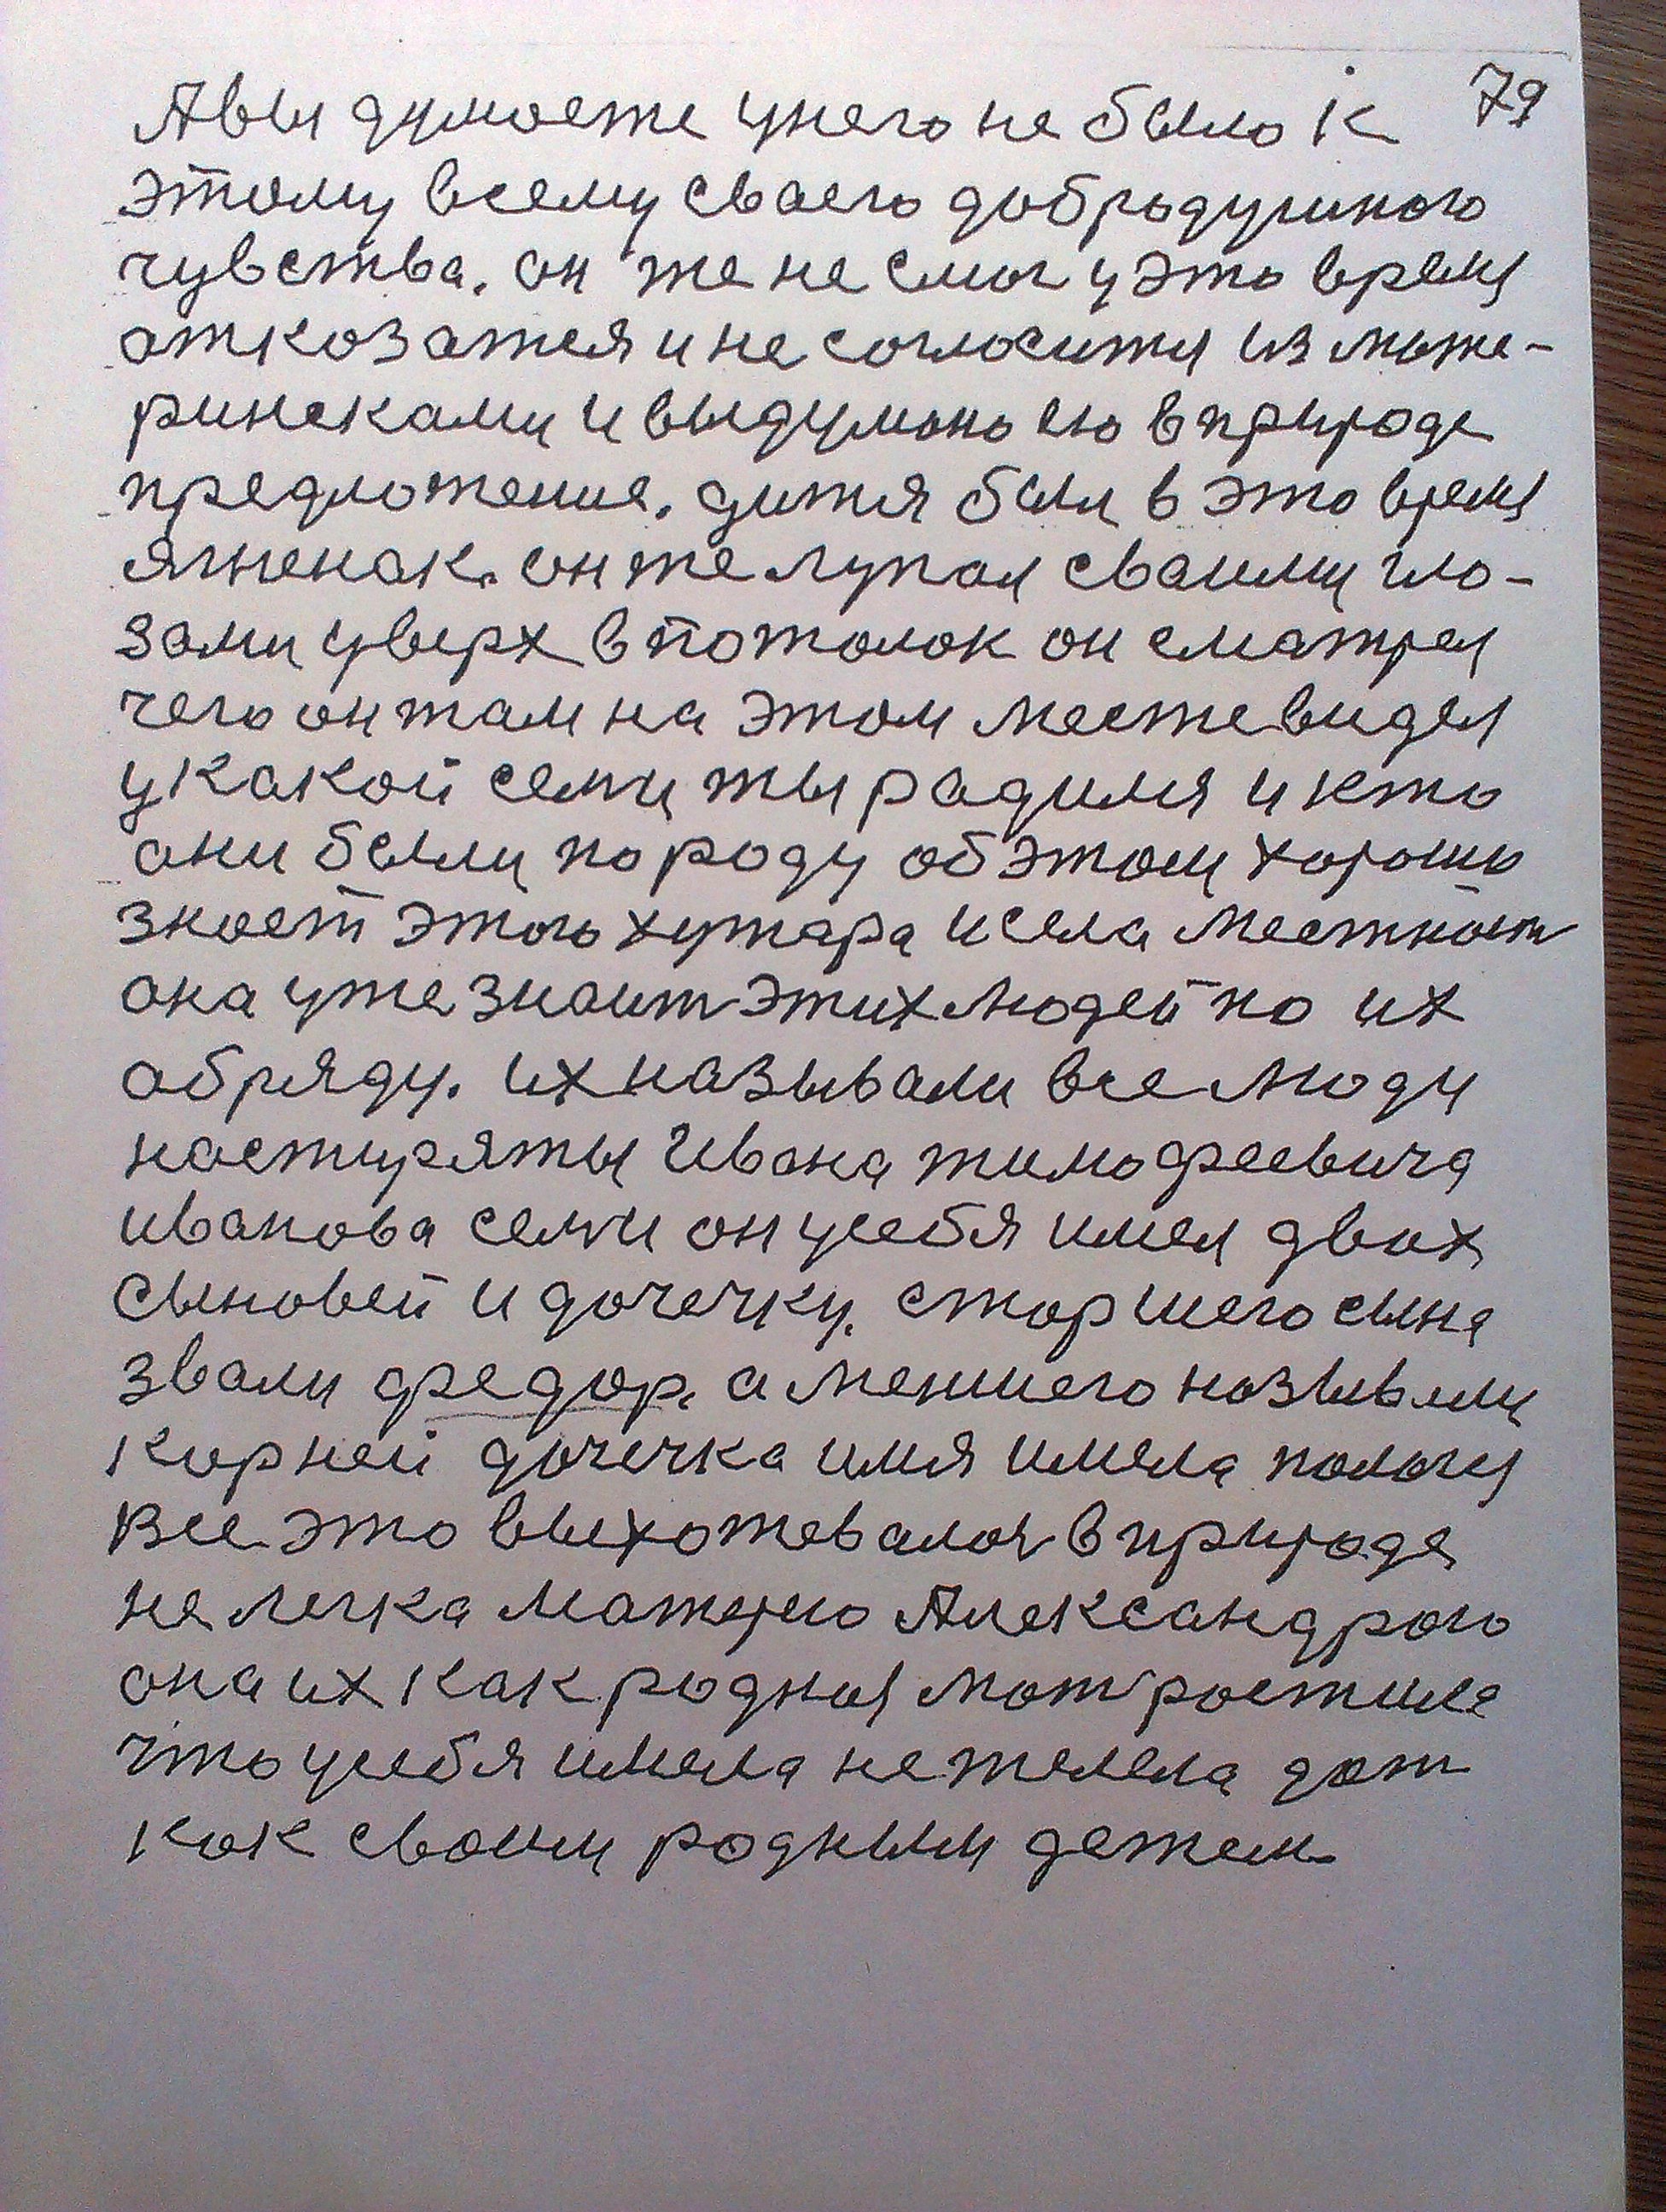 Авы думаете унего не было к 79
этому всему сваего добродушного
чувства. он же не смог у это время
атказатся и не согласится из мате-
ринсками и выдумано ею в природе
предложение. дитя был в это время
ягненак. он же лупал сваими гла-
зами уверх в потолок он сматрел
чего он там на этом месте видел
у какой семи ты радился и кто
ани были по роду об этом хорошо
знает этого хутара и села местност
она уже знаит этих людей по их
обряду. их называли все люди
настуряты Ивана тимофеевича
иванова семи он усебя имел двих
сыновей и дочечку. старшего сына
звали федор. а меншего называли
корней дочечка имя имела полагя
Все это выхотевалос в природе
не легка матерю Александрою
она их как родная мат ростила
что усебя имела не жалела дат
как сваим родным детем.